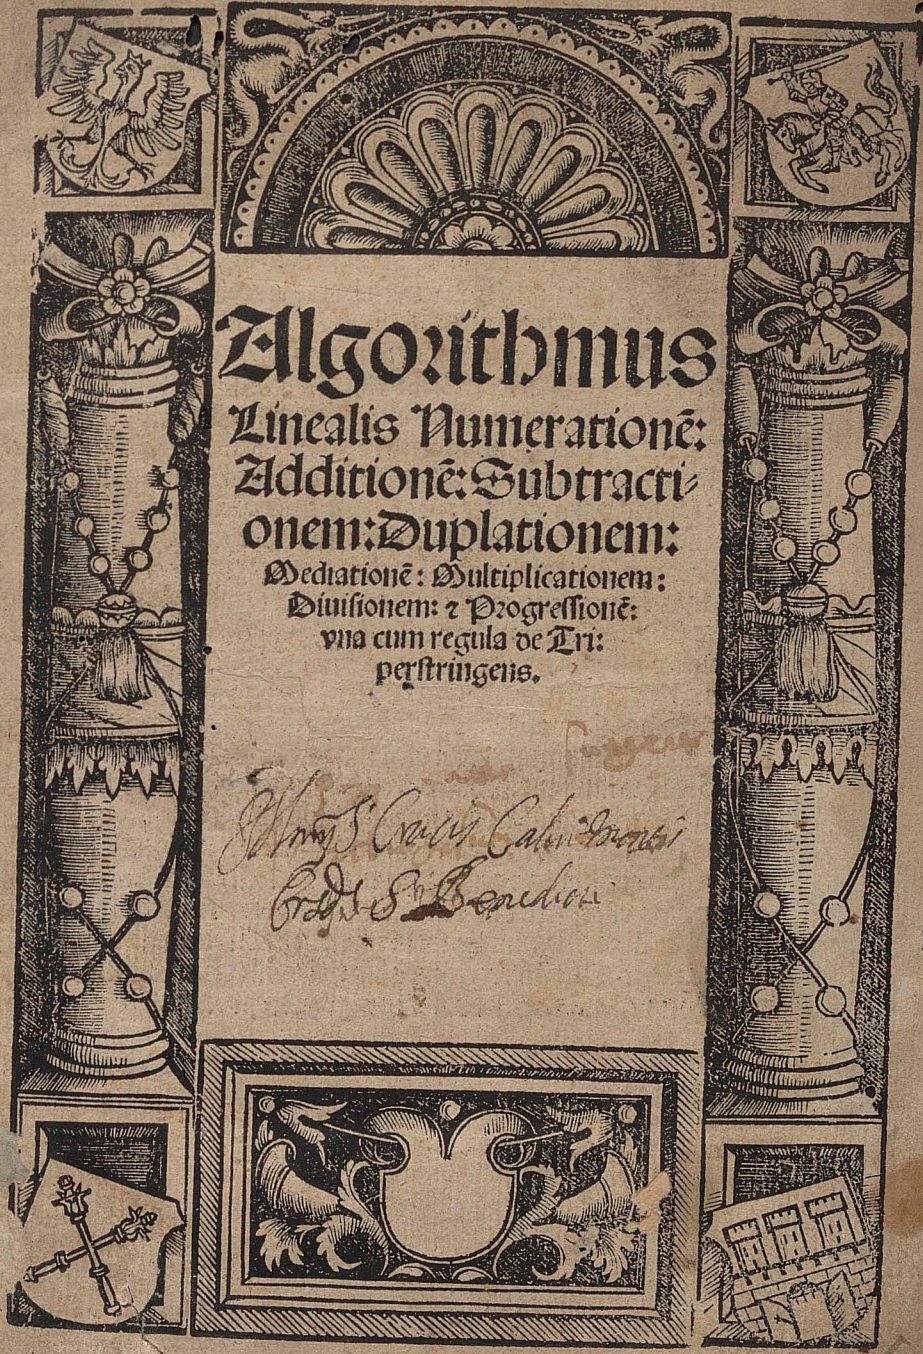 Algorithmus
Linealis Numerationē:
Additionē: Subtracti⸗
onem: Duplationem:
Mediationē: Multiplicationem:
Diuisionem: ⁊ Progressionē:
vna cum regula de Tri:
perstringens.
Crucis Calui Montis
S Benedicti